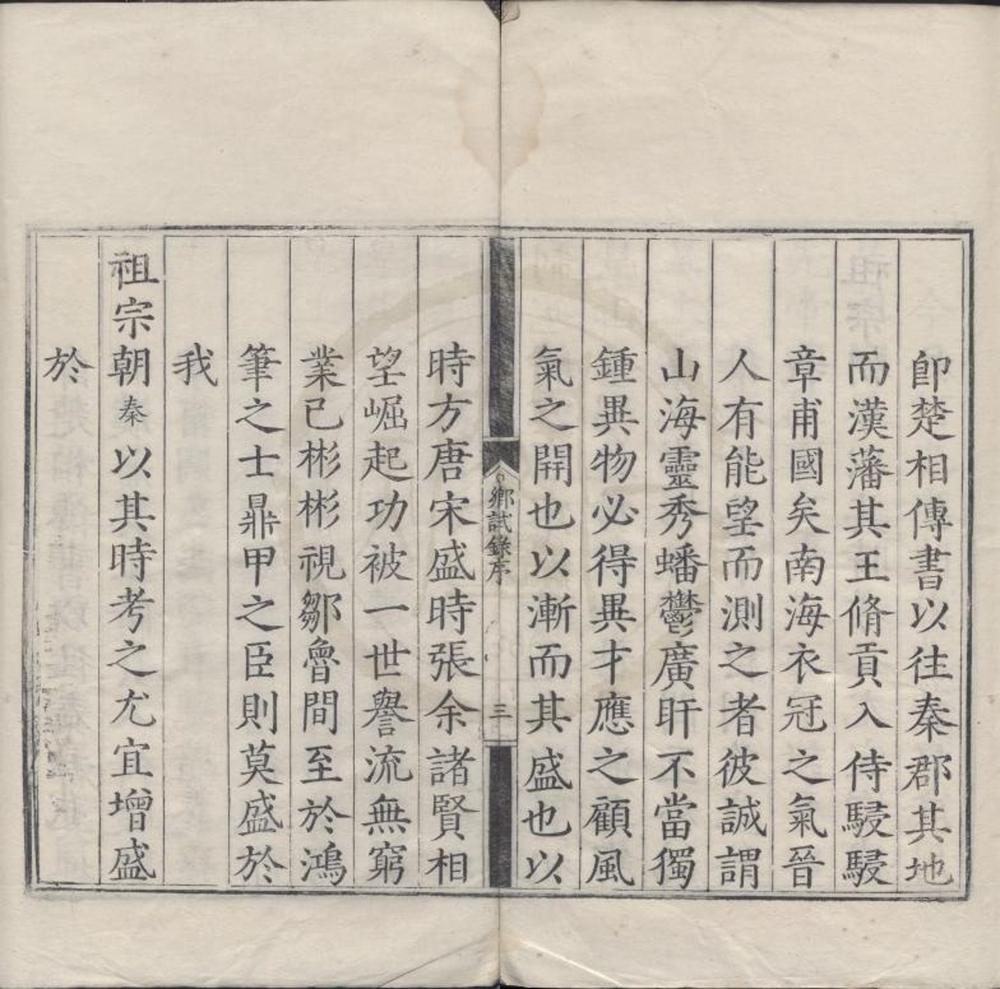 卽楚相傳書以往秦郡其地
而漢藩其王脩貢入侍駸駸
章甫國矣南海衣冠之氣晉
人有能望而測之者彼誠謂
山海靈秀蟠鬱廣盱不當獨
鍾異物必得異才應之顧風
氣之開也以漸而其盛也以
鄉試錄序
三
時方唐宋盛時張余諸賢相
望崛起功被一世譽流無窮
業已彬彬視鄒魯間至於鴻
筆之士鼎甲之臣則莫盛於
我
祖宗朝秦以其時考之尤宜增盛
於